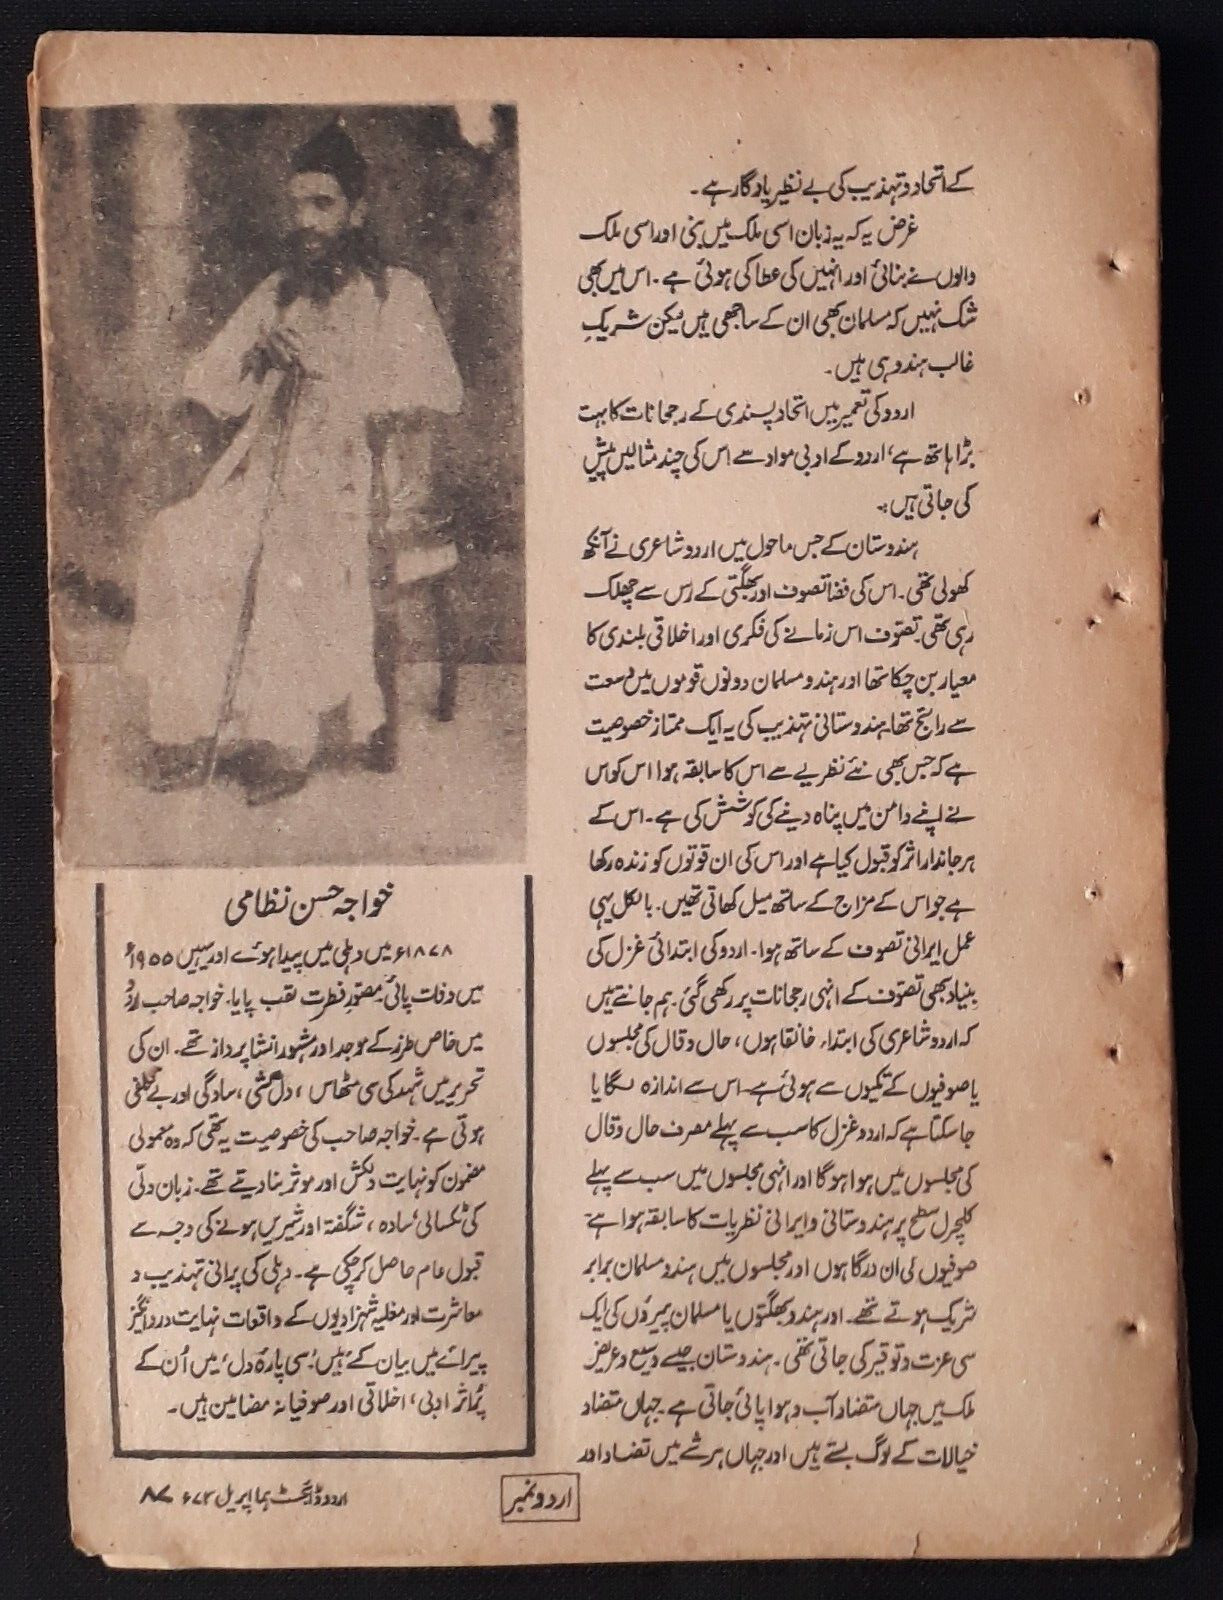 کے اتحاد و تہذیب کی بے نظیر یادگار ہے۔
غرض یہ کہ یہ زبان اسی ملک میں بنی اور اسی ملک
والوں نے بنائی اور انہیں کی عطا کی ہوئی ہے۔ اس میں بھی
شک نہیں کہ مسلمان بھی ان کے ساجھی ہیں لیکن شریکِ
غالب ہندو ہی ہیں۔
اردو کی تعمیر میں اتحاد پسندی کے رجحانات کا بہت
بڑا ہاتھ ہے، اردو کے ادبی مواد سے اس کی چند مثالیں پیش
کی جاتی ہیں:۔
ہندوستان کے جس ماحول میں اردو شاعری نے آنکھ
کھولی تھی۔ اس کی فضا تصوف اور بھگتی کے رس سے چھلک
رہی تھی۔ تصوّف اس زمانے کی فکری اور اخلاقی بلندی کا
معیار بن چکا تھا اور ہندو مسلمان دونوں قوموں میں وسعت
سے رائج تھا۔ ہندوستانی تہذیب کی یہ ایک ممتاز خصوصیت
ہے کہ جس بھی نئے نظریے سے اس کا سابقہ ہوا اس کو اس
نے اپنے دامن میں پناہ دینے کی کوشش کی ہے۔ اس کے
ہر جاندار اثر کو قبول کیا ہے اور اس کی ان قوتوں کو زندہ رکھا
ہے جو اس کے مزاج کے ساتھ میل کھاتی تھیں۔ بالکل یہی
عمل ایرانی تصوف کے ساتھ ہوا۔ اردو کی ابتدائی غزل کی
بنیاد بھی تصوّف کے انہی رجحانات پر رکھی گئی۔ ہم جانتے ہیں
کہ اردو شاعری کی ابتداء خانقاہوں، حال و قال کی مجلسوں
یا صوفیوں کے تکیوں سے ہوئی ہے۔ اس سے اندازہ لگایا
جا سکتا ہے کہ اردو غزل کا سب سے پہلے مصرف حال و قال
کی مجلسوں میں ہوا ہوگا اور انہی مجلسوں میں سب سے پہلے
کلچرل سطح پر ہندوستانی و ایرانی نظریات کا سابقہ ہوا ہے۔
صوفیوں کی ان درگاہوں اور مجلسوں میں ہندو مسلمان برابر
شریک ہوتے تھے۔ اور ہندو بھگتوں یا مسلمان پیروں کی ایک
سی عزت و توقیر کی جاتی تھی۔ ہندوستان جیسے وسیع و عریض
ملک میں جہاں متضاد آب و ہوا پائی جاتی ہے۔ جہاں متضاد
خیالات کے لوگ بستے ہیں اور جہاں ہر شے میں تضاد اور
خواجہ حسن نظامی
۱۸۷۸ء میں دہلی میں پیدا ہوئے اور یہیں ۱۹۵۵ء
میں وفات پائی۔ مصوّرِ فطرت لقب پایا۔ خواجہ صاحب اردو
میں خاص طرز کے موجد اور مشہور انشا پرداز تھے۔ ان کی
تحریر میں شہد کی سی مٹھاس، دل کشی، سادگی اور بے تکلفی
ہوتی ہے۔ خواجہ صاحب کی خصوصیت یہ تھی کہ وہ معمولی
مضمون کو نہایت دلکش اور موثر بنا دیتے تھے۔ زبان دلّی
کی ٹکسالی سادہ، شگفتہ اور شیریں ہونے کی وجہ سے
قبول عام حاصل کر چکی ہے۔ دہلی کی پرانی تہذیب و
معاشرت اور مغلیہ شہزادیوں کے واقعات نہایت درد انگیز
پیرائے میں بیان کئے ہیں۔ 'سی پارہ دل' میں اُن کے
پُراثر ادبی، اخلاقی اور صوفیانہ مضامین ہیں۔
اردو نمبر
اردو ڈائجسٹ ہما اپریل ۷۳ء ۸۷